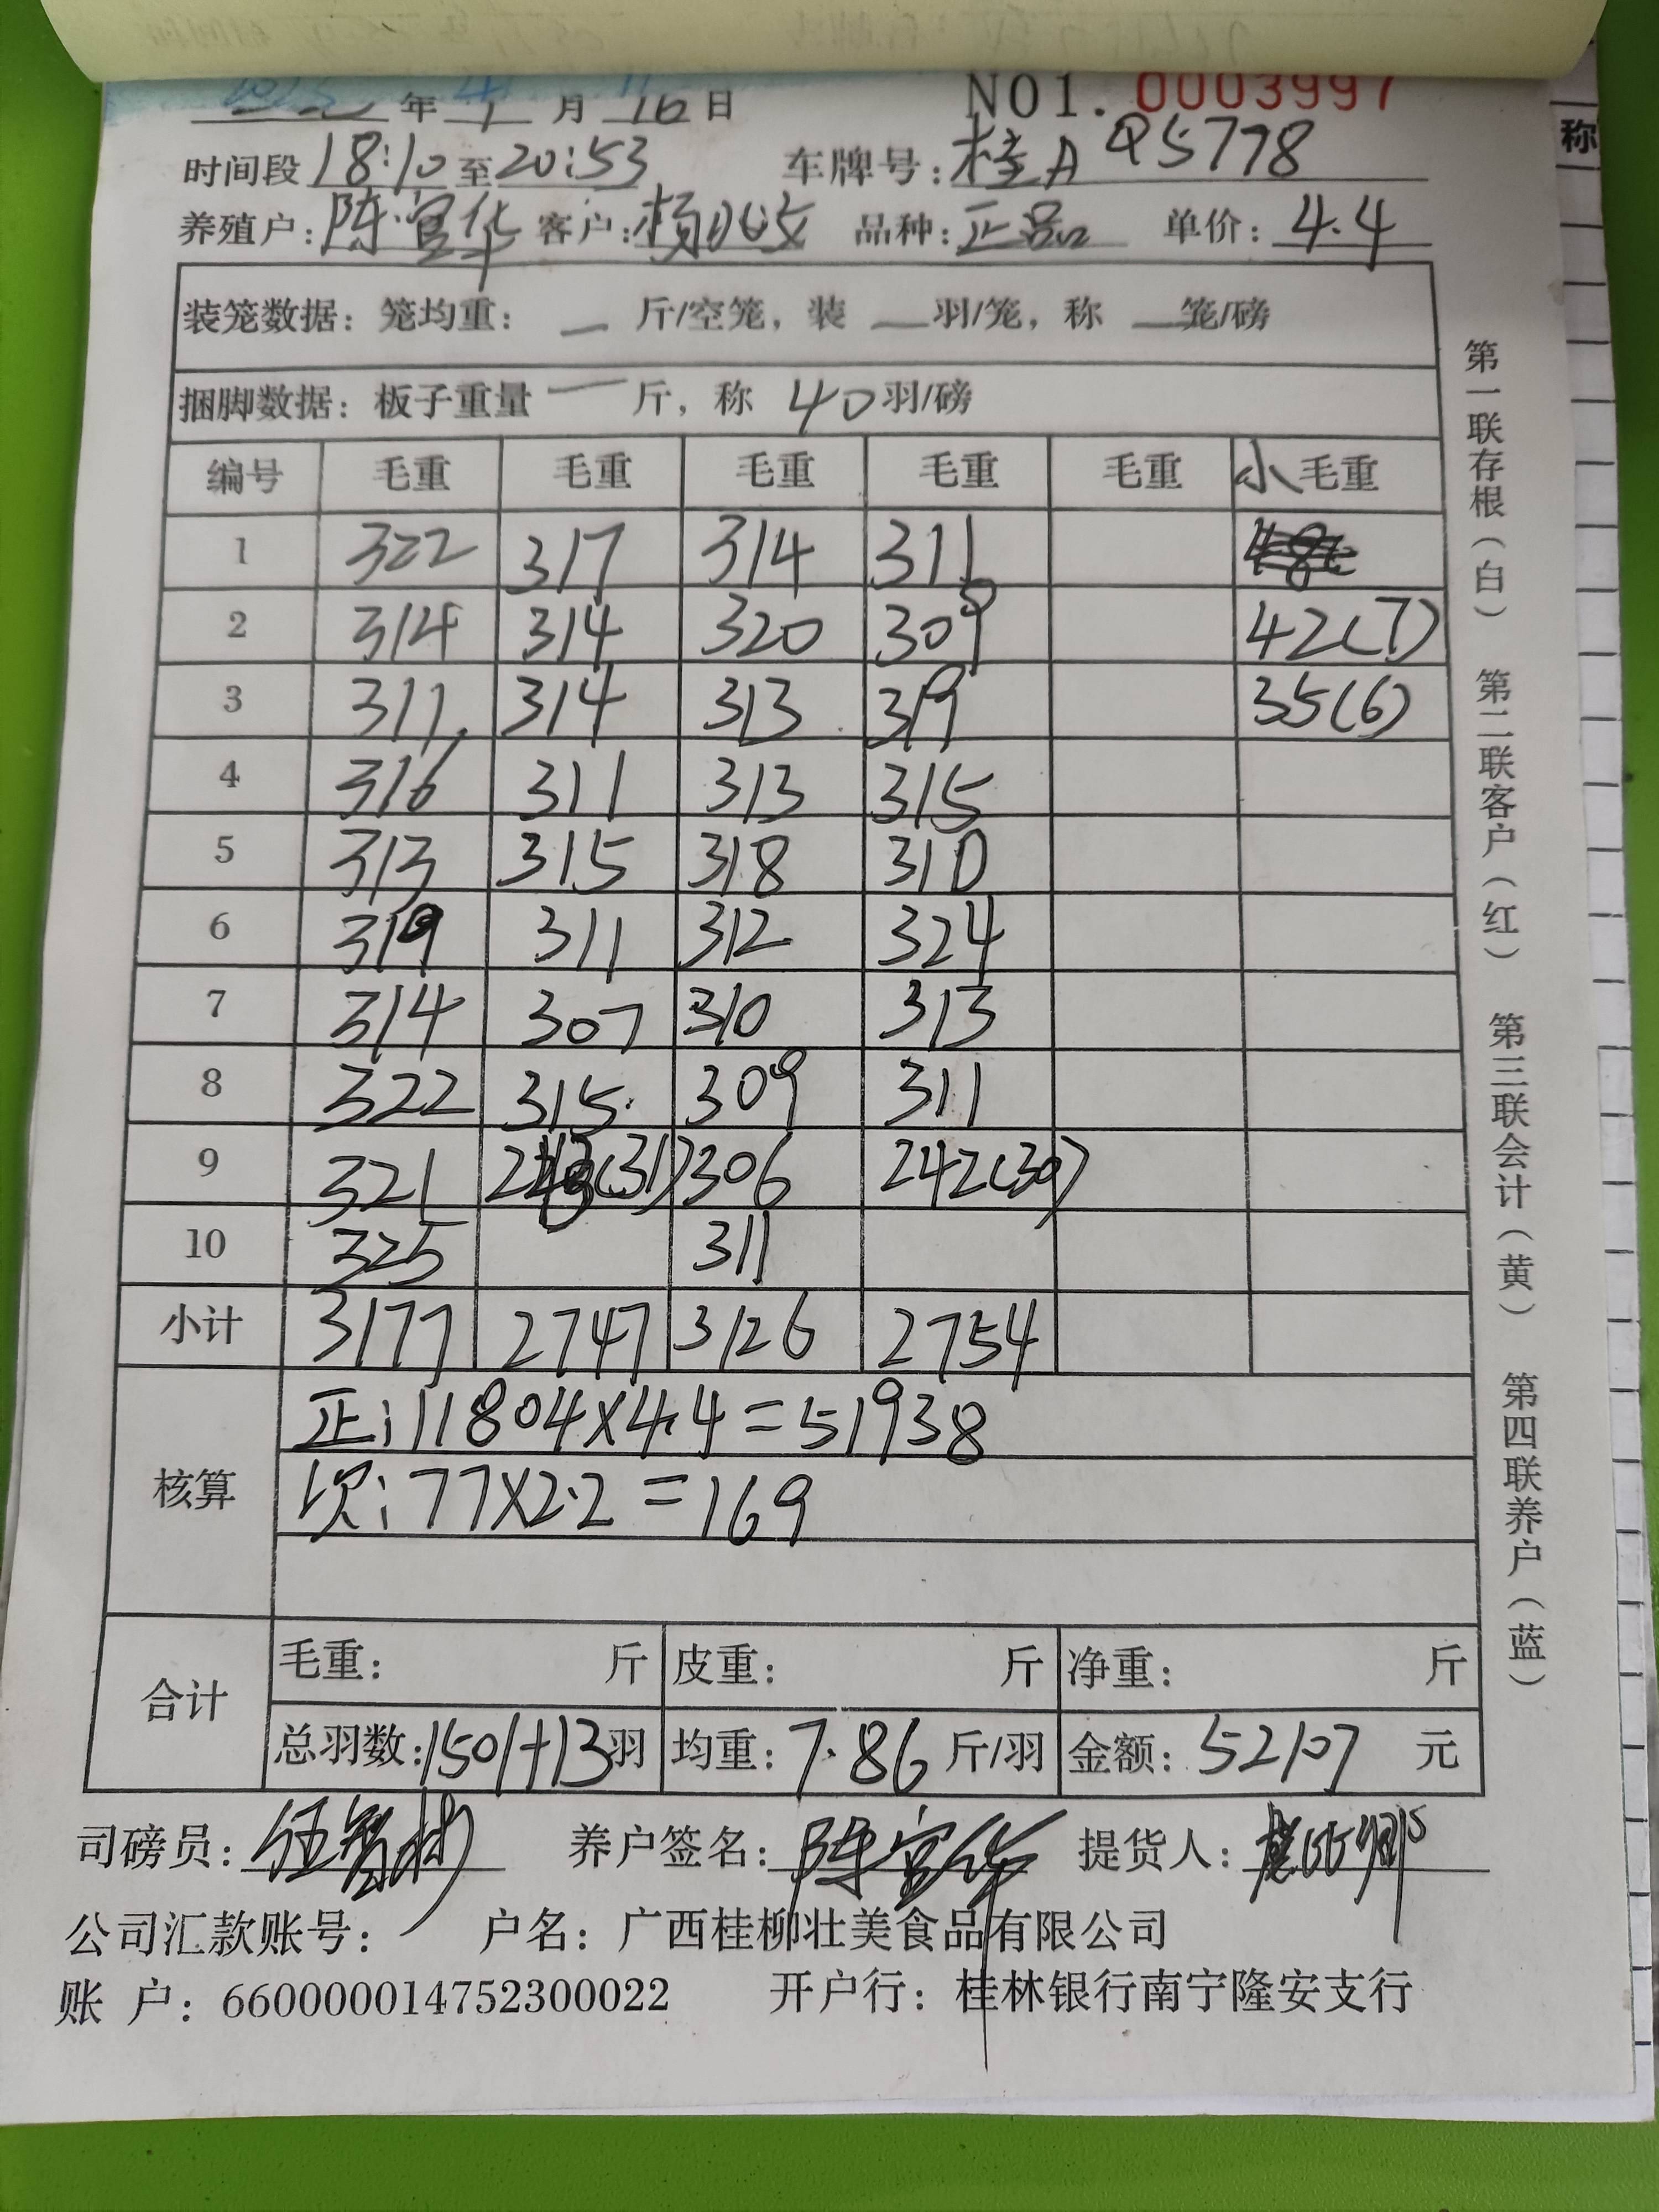 年 月 16日 NO1. 0003997
时间段 18:10 至 20:53 车牌号: 桂A Q5778
养殖户: 陈宣华 客户: 杨 品种: 正品 单价: 4.4
装笼数据: 笼均重: — 斤/空笼, 装 —羽/笼, 称 —笼/磅
捆脚数据: 板子重量 — 斤, 称 40 羽/磅
编号 毛重 毛重 毛重 毛重 毛重 小毛重
1 322 317 314 311
2 314 314 320 309 42(7)
3 311 314 313 319 35(6)
4 316 311 313 315
5 313 315 318 310
6 319 311 312 324
7 314 307 310 313
8 322 315 309 311
9 321 243(31) 306 242(30)
10 325 311
小计 3177 2747 3126 2754
核算
正: 11804×4.4=51938
次: 77×2.2=169
合计
毛重: 斤 皮重: 斤 净重: 斤
总羽数: 1501+13羽 均重: 7.86 斤/羽 金额: 52107 元
司磅员: 养户签名: 陈宣华 提货人:
公司汇款账号: 户名: 广西桂柳壮美食品有限公司
账 户: 660000014752300022 开户行: 桂林银行南宁隆安支行
第一联存根(白) 第二联客户(红) 第三联会计(黄) 第四联养户(蓝)
称